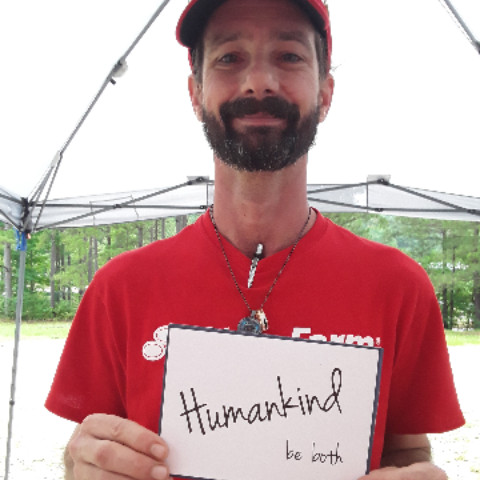 Farm
Humankind
be both